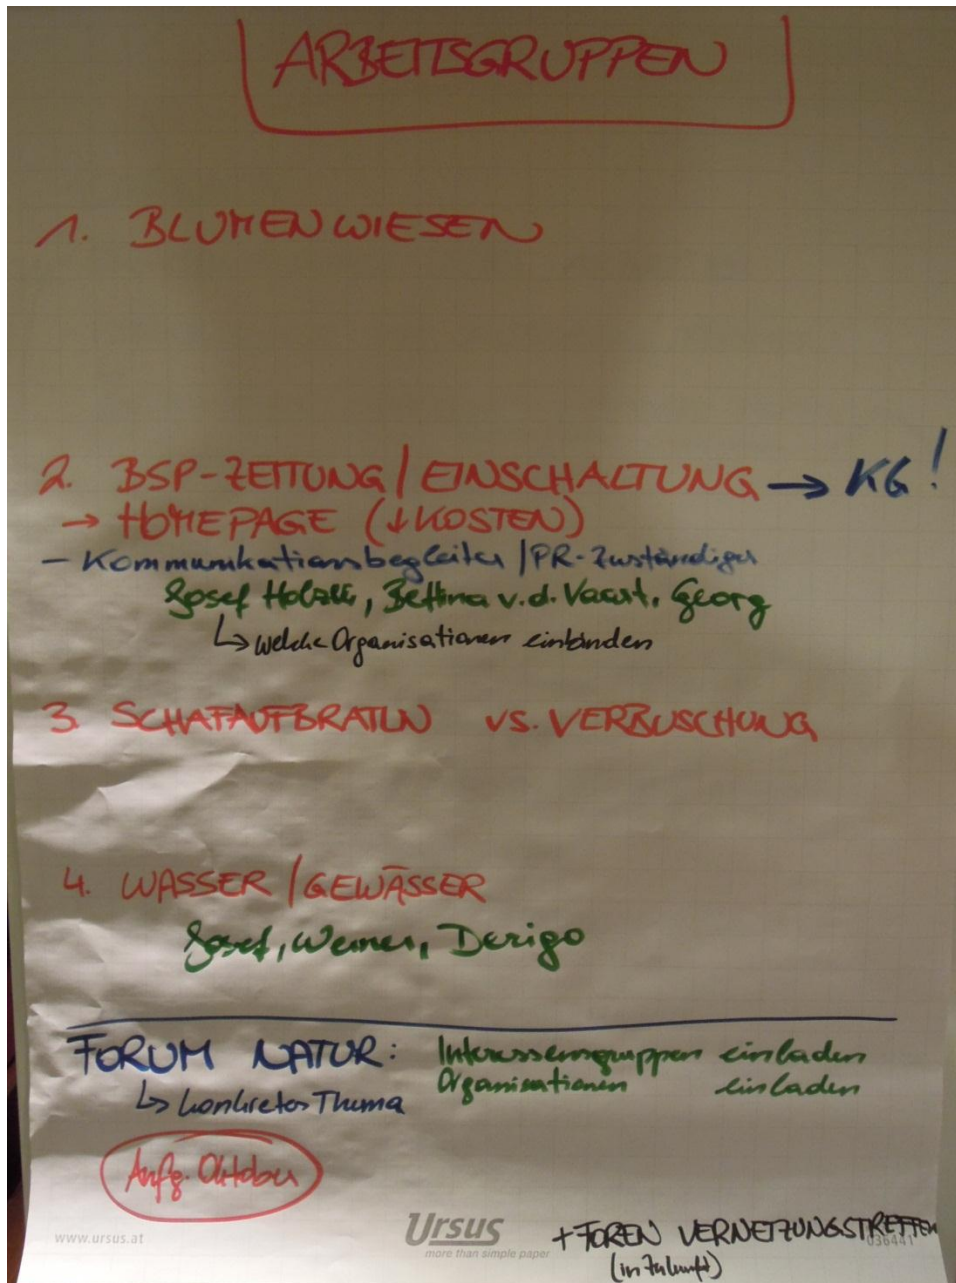 ARBEITSGRUPPEN
1. BLUMENWIESEN
2. BSP-ZEITUNG / EINSCHALTUNG → KG!
→ HOMEPAGE (↓KOSTEN)
- Kommunikationsbegleiter / PR-Zuständiger
Josef, Bettina v.d. Vaart, Georg
↳ welche Organisationen einbinden
3. VS. VERBUSCHUNG
4. WASSER / GEWÄSSER
Josef, Werner, Derigo
FORUM NATUR: Interessensgruppen einladen
Organisationen einladen
↳ konkretes Thema
Anfg. Oktober
www.ursus.at
Ursus
more than simple paper
036441
+ FOREN VERNETZUNGSTREFFEN
(in Zukunft)